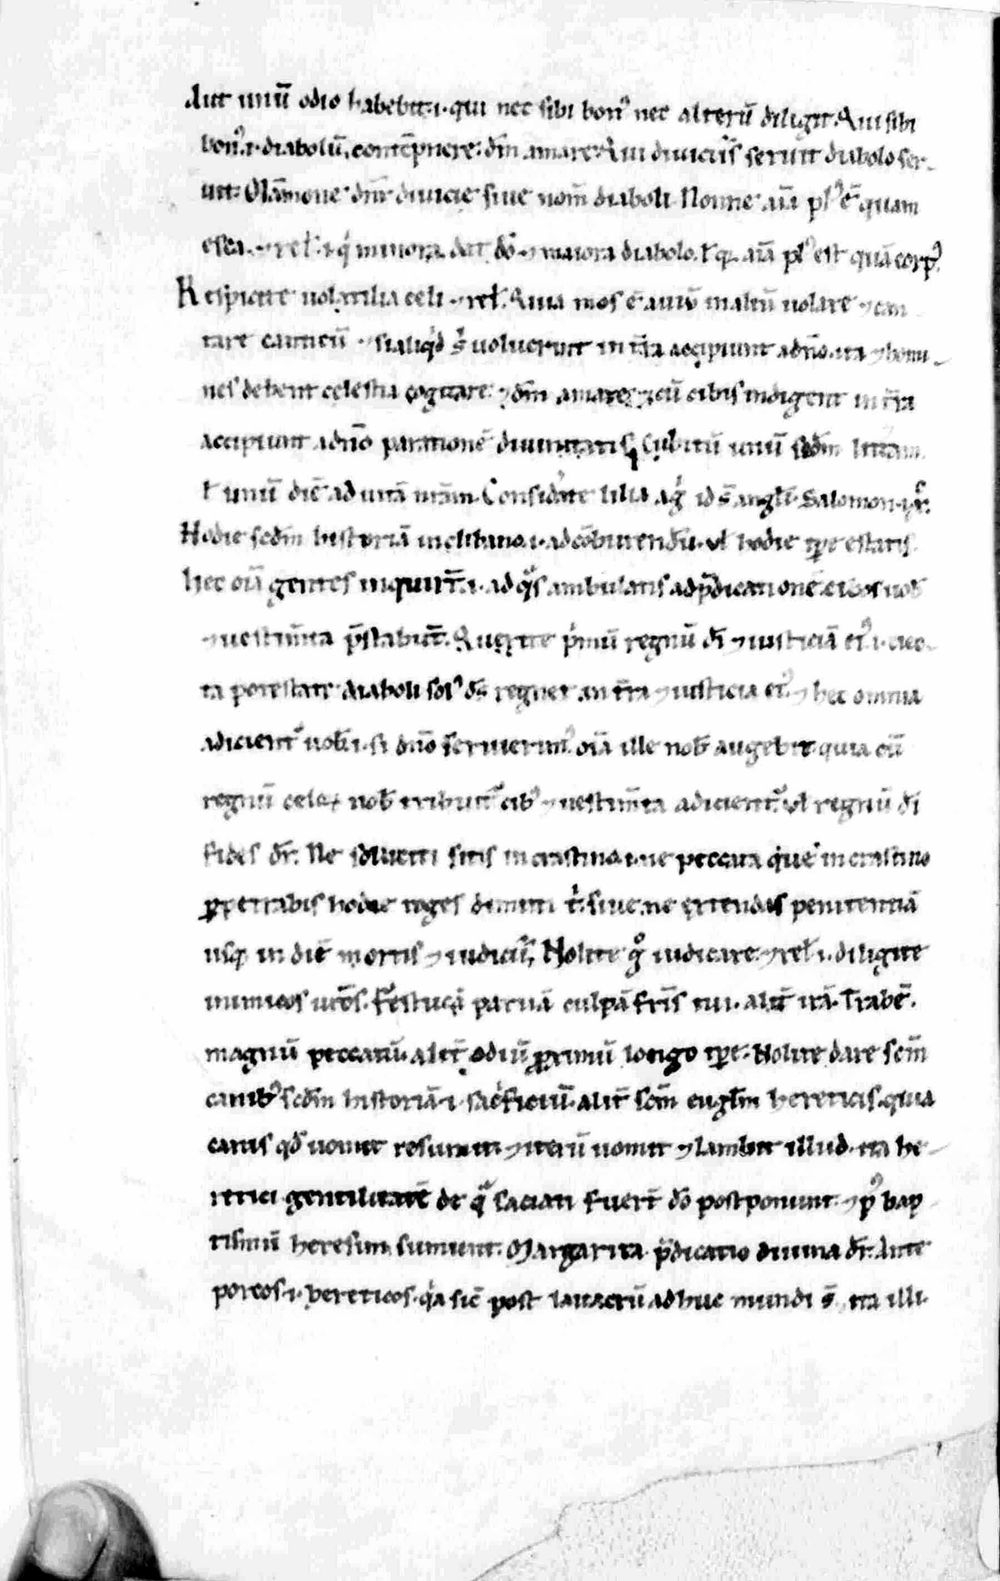 Aut unū odio habebit .i. qui nec sibi bonꝰ nec alterū diligit Qui sibi
bonꝰ .i. diabolū contēpnere. dm̄ amare Qui diuiciis seruit diabolo ser-
uit. Māmone dn̄r diuicie siue nom̄ diaboli. Nonne aīa plꝰ ē quam
esca. ⁊ rel. minora dat dō ⁊ maiora diabolo. ł qꝫ aīa plꝰ est quā corpꝰ.
Respicite uolatilia celi ⁊ rel. Quia mos ē auiū multū uolare ⁊ can
tare canticū ⁊ si aliqͥd uoluerint in tr̄a accipiunt a dn̄o. ita ⁊ homi-
nes debent celestia cogitare. ⁊ dm̄ amare. ⁊ cū cibis indigent in tr̄a
accipiunt a dn̄o par diuinitatis Cubitū unū scdm̄ litt̄am
ł unū diē ad uitā ur̄am. Considerate lilia agͥ id s̄ angłi. Salomon .i. xr̄.
Hodie scdm̄ historiā in clibano .i. ad cōburendū. uł hodie tꝑe estatis
hec oīa gentes inquirūt .i. ad qͣs ambulatis ad p̄dicationē cibos uob
⁊ uestim̄ta p̄stabūt. Querite pͥmū regnū dī ⁊ iusticiā eiꝰ .i. eiec
ta potestate diaboli solꝰ dš regnet in tr̄a ⁊ iusticia eiꝰ ⁊ hec omnia
adicientᷣ uob .i. si dn̄o seruierimꝰ. oīa ille nob augebit quia cū
regnū celoꝝ nob tribuitᷣ cibꝰ ⁊ uestim̄ta adicientᷣ. uł regnū dī
fides dr̄. Ne solliciti sitis in crastino .i. ne peccata que in crastino
ꝑpetrabis hodie roges dimitti tͥ. siue. ne extendas penitentiā
usqꝫ in diē mortis ⁊ iudicii. Nolite gͦ iudicare. ⁊ rel .i. diligite
inimicos ur̄os. Festucā paruā culpā frīs tui. alit̄ irā. Trabē.
magnū peccatū. alit̄ odiū ꝓximū longo tꝑe. Nolite dare scm̄
canibꝰ scdm̄ historiā .i. sacͥficiū. alit̄ scm̄ euglm̄ hereticis. quia
canis qd̄ uomit resumit ⁊ iterū uomit ⁊ lambit illud. ita he-
retici gentilitatē de qͣ saciati fuert̄ dō postponunt. ⁊ pꝰ bap
tismū heresim sumunt. Margarita p̄dicatio diuina dr̄. Ante
porcos .i. hereticos. qͥa sic̄ post lauacrū adhuc mundi s̄ ita illi.